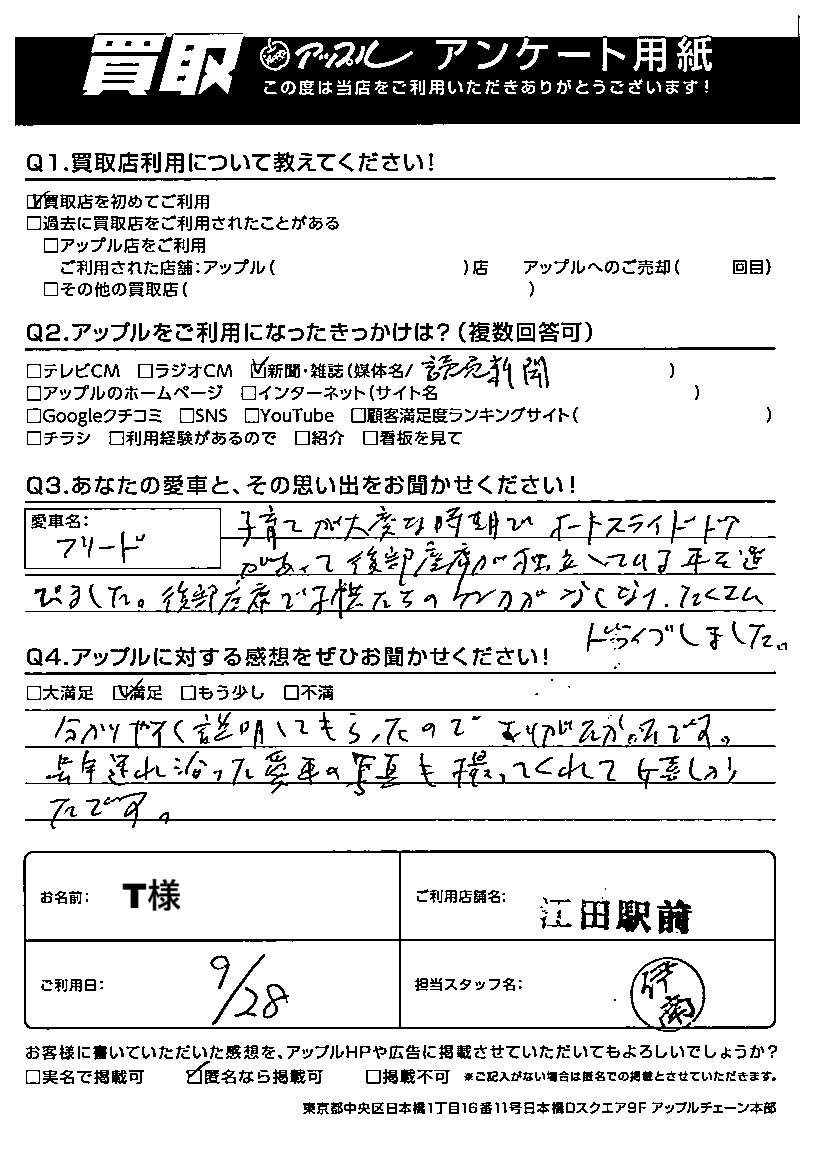 買取 アップル アンケート用紙
この度は当店をご利用いただきありがとうございます!
Q1.買取店利用について教えてください!
☑買取店を初めてご利用
□過去に買取店をご利用されたことがある
□アップル店をご利用
ご利用された店舗:アップル( )店 アップルへのご売却( 回目)
□その他の買取店( )
Q2.アップルをご利用になったきっかけは?(複数回答可)
□テレビCM □ラジオCM ☑新聞・雑誌(媒体名/ 読売新聞 )
□アップルのホームページ □インターネット(サイト名 )
□Googleクチコミ □SNS □YouTube □顧客満足度ランキングサイト( )
□チラシ □利用経験があるので □紹介 □看板を見て
Q3.あなたの愛車と、その思い出をお聞かせください!
愛車名:
フリード
子育てが大変な時期でオートスライドドア
があって後部座席が独立している車を選
びました。後部座席で子供たちのケンカがなくなり、たくさん
ドライブしました。
Q4.アップルに対する感想をぜひお聞かせください!
□大満足 ☑満足 □もう少し □不満
分かりやすく説明してもらったのでありがたかったです。
長年連れ沿った愛車の写真も撮ってくれてうれしかっ
たです。
お名前: T様
ご利用店舗名: 江田駅前
ご利用日: 9/28
担当スタッフ名: 伊南
お客様に書いていただいた感想を、アップルHPや広告に掲載させていただいてもよろしいでしょうか?
□実名で掲載可 ☑匿名なら掲載可 □掲載不可 ※ご記入がない場合は匿名での掲載とさせていただきます。
東京都中央区日本橋1丁目16番11号日本橋Dスクエア9F アップルチェーン本部